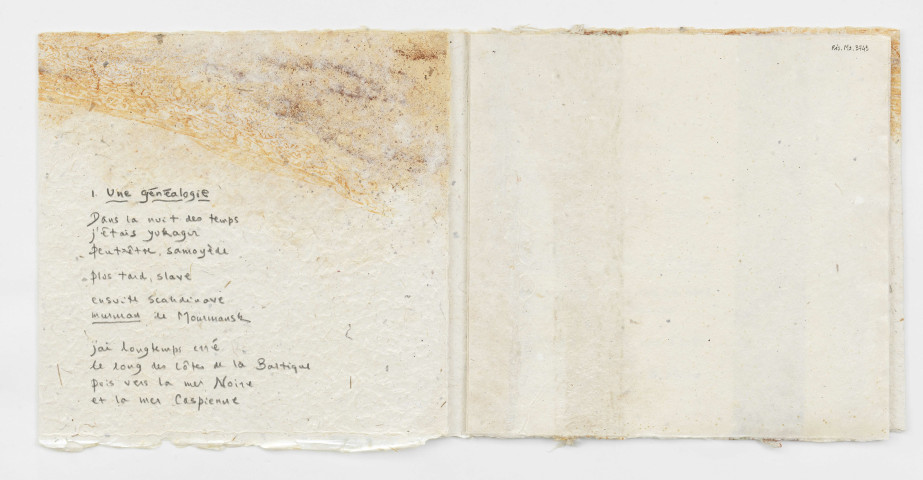 1. Une généalogie
Dans la nuit des temps
j'étais yukagir
peut-être, samoyède
plus tard, slave
ensuite scandinave
murman de Mourmansk
j'ai longtemps erré
le long des côtes de la Baltique
puis vers la mer Noire
et la mer Caspienne